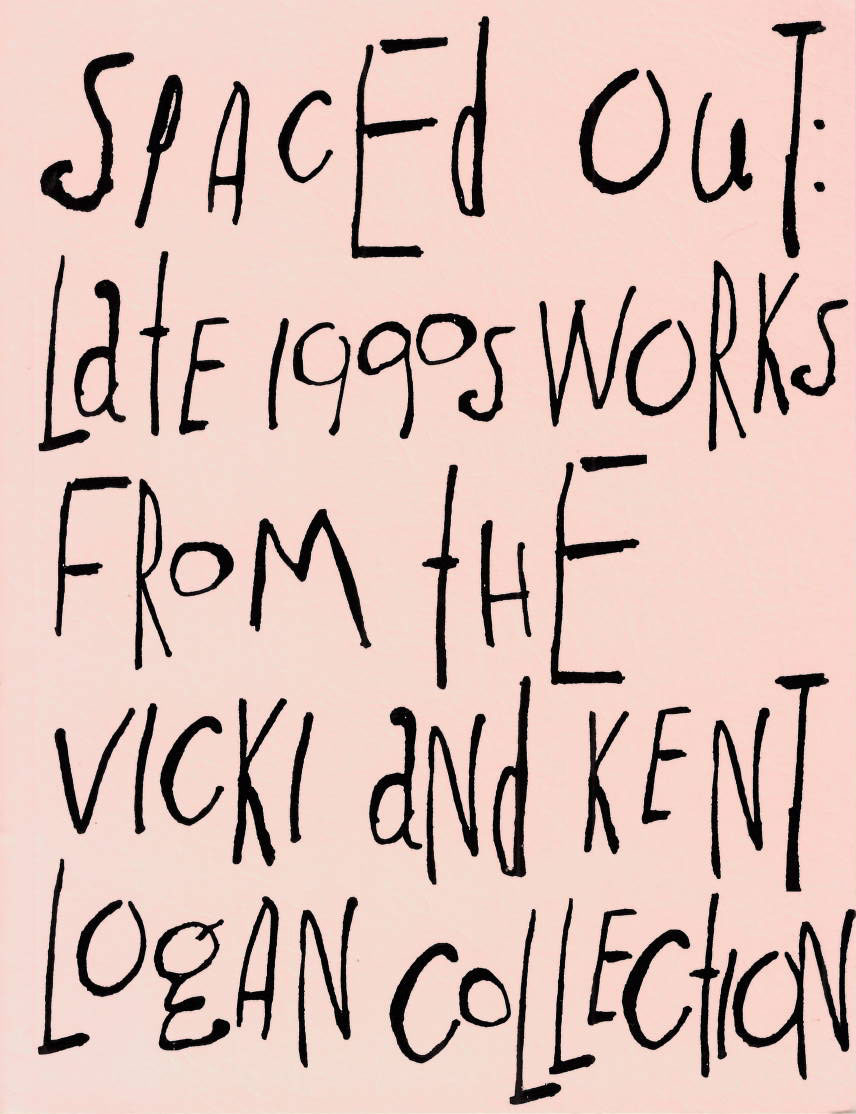 SPACEd OuT:
LatE 1990s WORKS
FROM tHE
VICKI aNd KENT
LOgAN COLLECtION